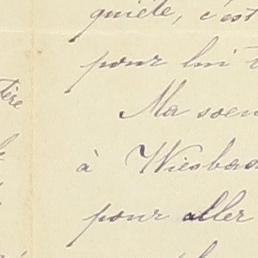 quiète, c'est
pour lui
Ma soeu
à Wiesbad
pour aller